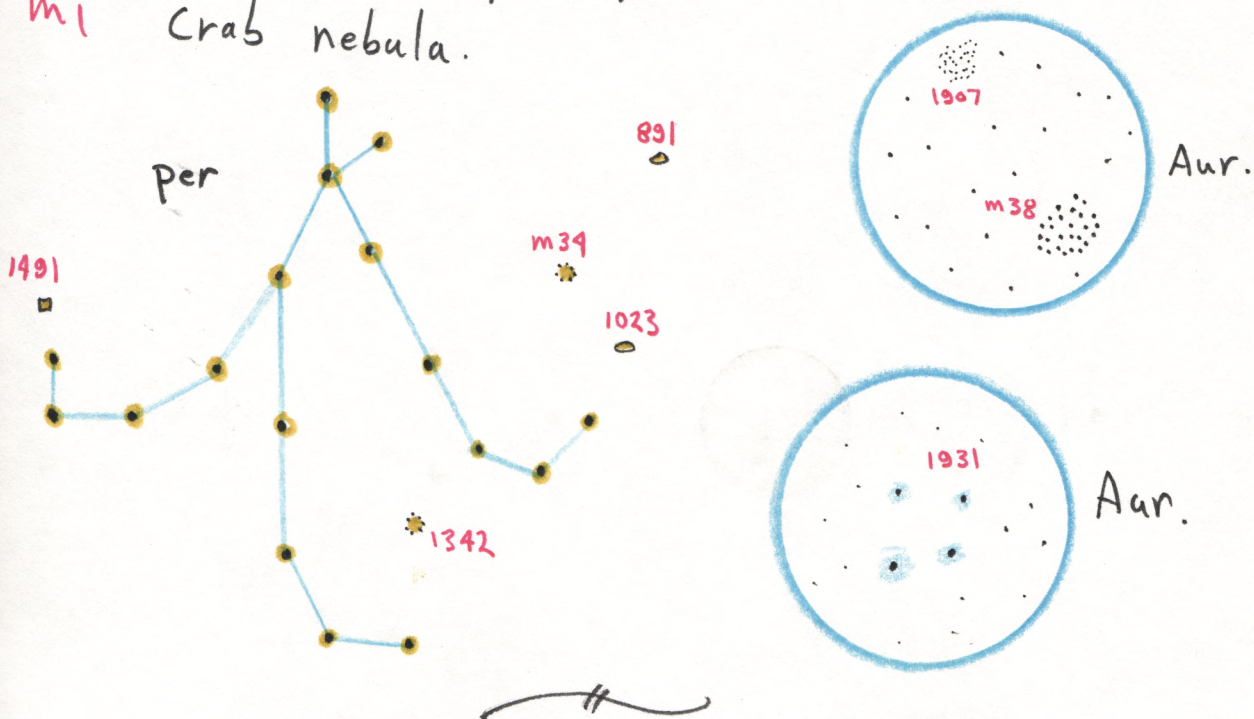 m1 Crab nebula.
per
891
m34
1491
1023
1342
1907
m38
Aur.
1931
Aur.